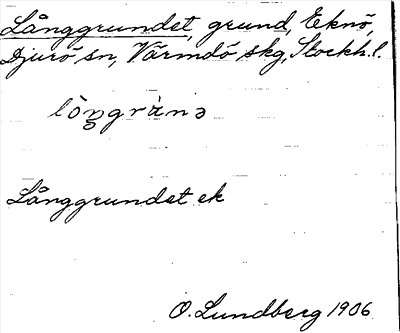 Långgrundet, grund, Eknö,
Djurö sn, Värmdö skg, Stockh.l.
Långgrundet ek
O. Lundberg 1906